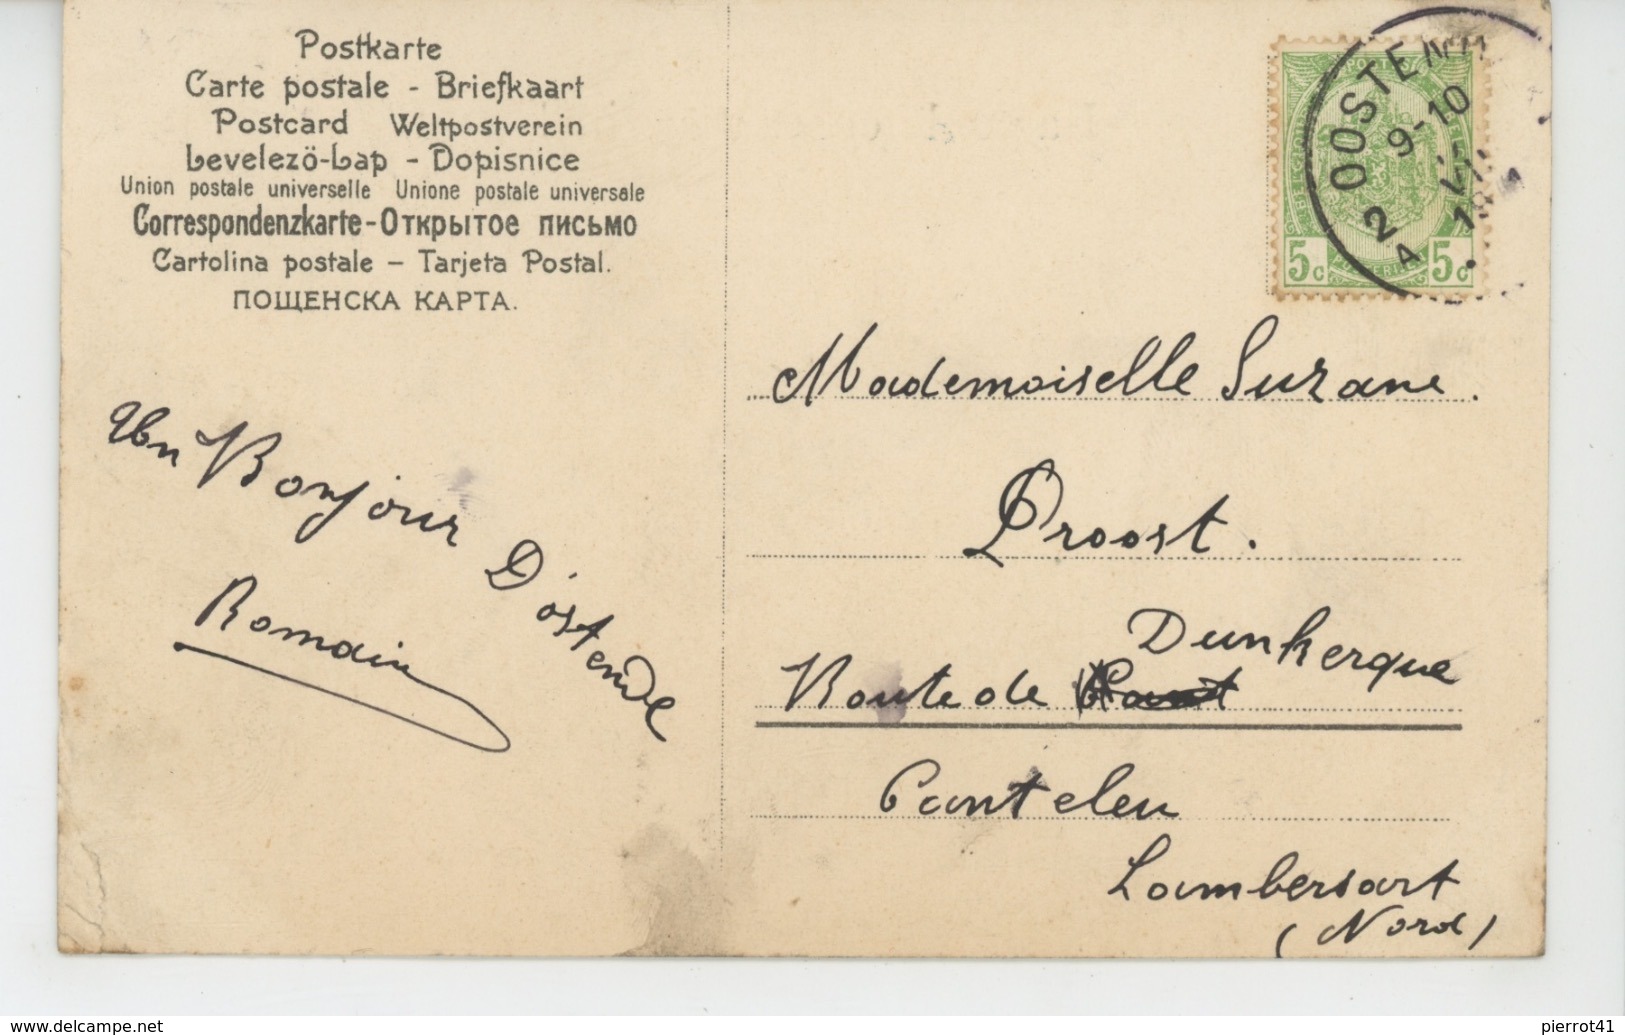 Postkarte
Carte postale - Briefkaart
Postcard Weltpostverein
Levelezö-Lap - Dopisnice
Union postale universelle Unione postale universale
Correspondenzkarte-Открытое письмо
Cartolina postale – Tarjeta Postal.
ПОЩЕНСКА КАРТА.
Un Bonjour D'ostende
Romain
OOSTEN
9-10
2 A
5c 5c
Mademoiselle Suzane.
Proost.
Dunkerque
Route de
Canteleu
Lambersart
(Nord)
www.delcampe.net
pierrot41